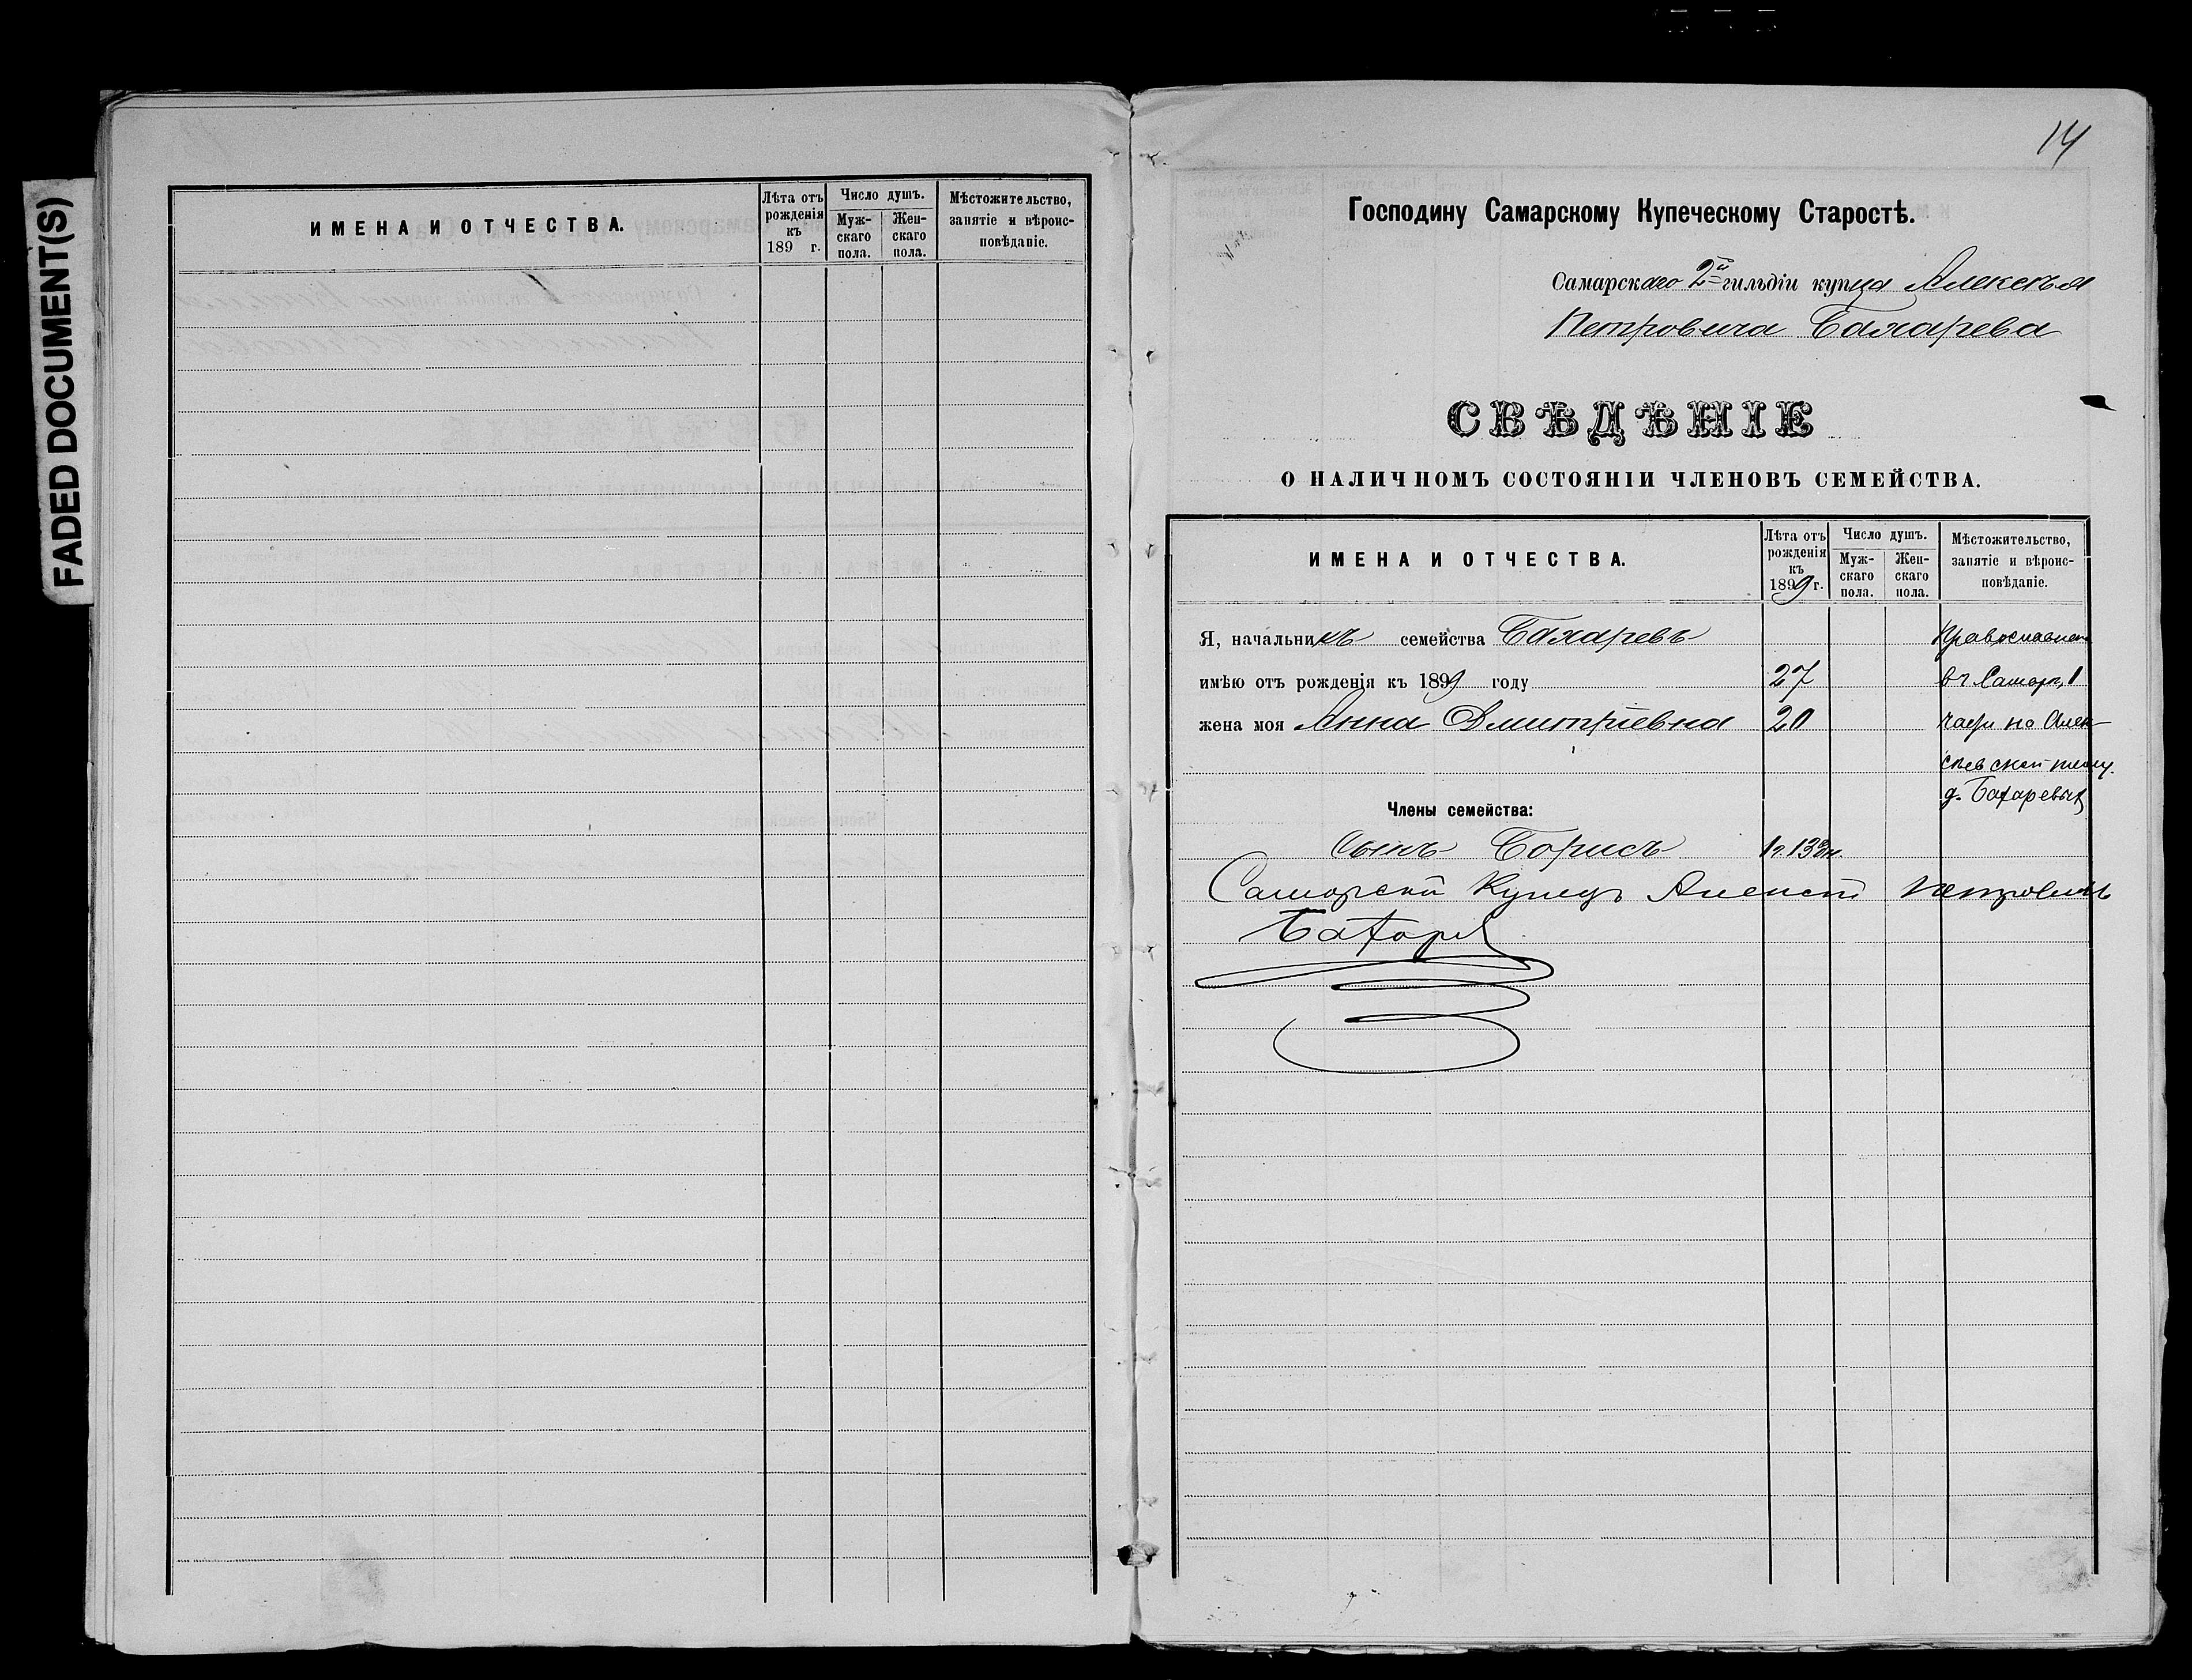 FADED DOCUMENT(S)
ИМЕНА И ОТЧЕСТВА.
Лѣта отъ рожденія къ 189 г.
Число душъ.
Мужскаго пола.
Женскаго пола.
Мѣстожительство, занятіе и вѣроисповѣданіе.
14
Господину Самарскому Купеческому Старостѣ.
Самарскаго 2й гильдіи купца Алексѣя
Петровича Бахарева
СВѢДѢНІЕ
О НАЛИЧНОМЪ СОСТОЯНІИ ЧЛЕНОВЪ СЕМЕЙСТВА.
ИМЕНА И ОТЧЕСТВА.
Лѣта отъ рожденія къ 1899 г.
Число душъ.
Мужскаго пола.
Женскаго пола.
Мѣстожительство, занятіе и вѣроисповѣданіе.
Я, начальникъ семейства Бахаревъ Православнаго
имѣю отъ рожденія къ 1899 году 27 въ Самарѣ, 1
жена моя Анна Дмитріевна 20 части на Алек
сѣевской площ.
д. Бахаревыхъ
Члены семейства:
Сынъ Борисъ 1г. 13дн.
Самарскій Купецъ Алексѣй Петровичъ
Бахаревъ